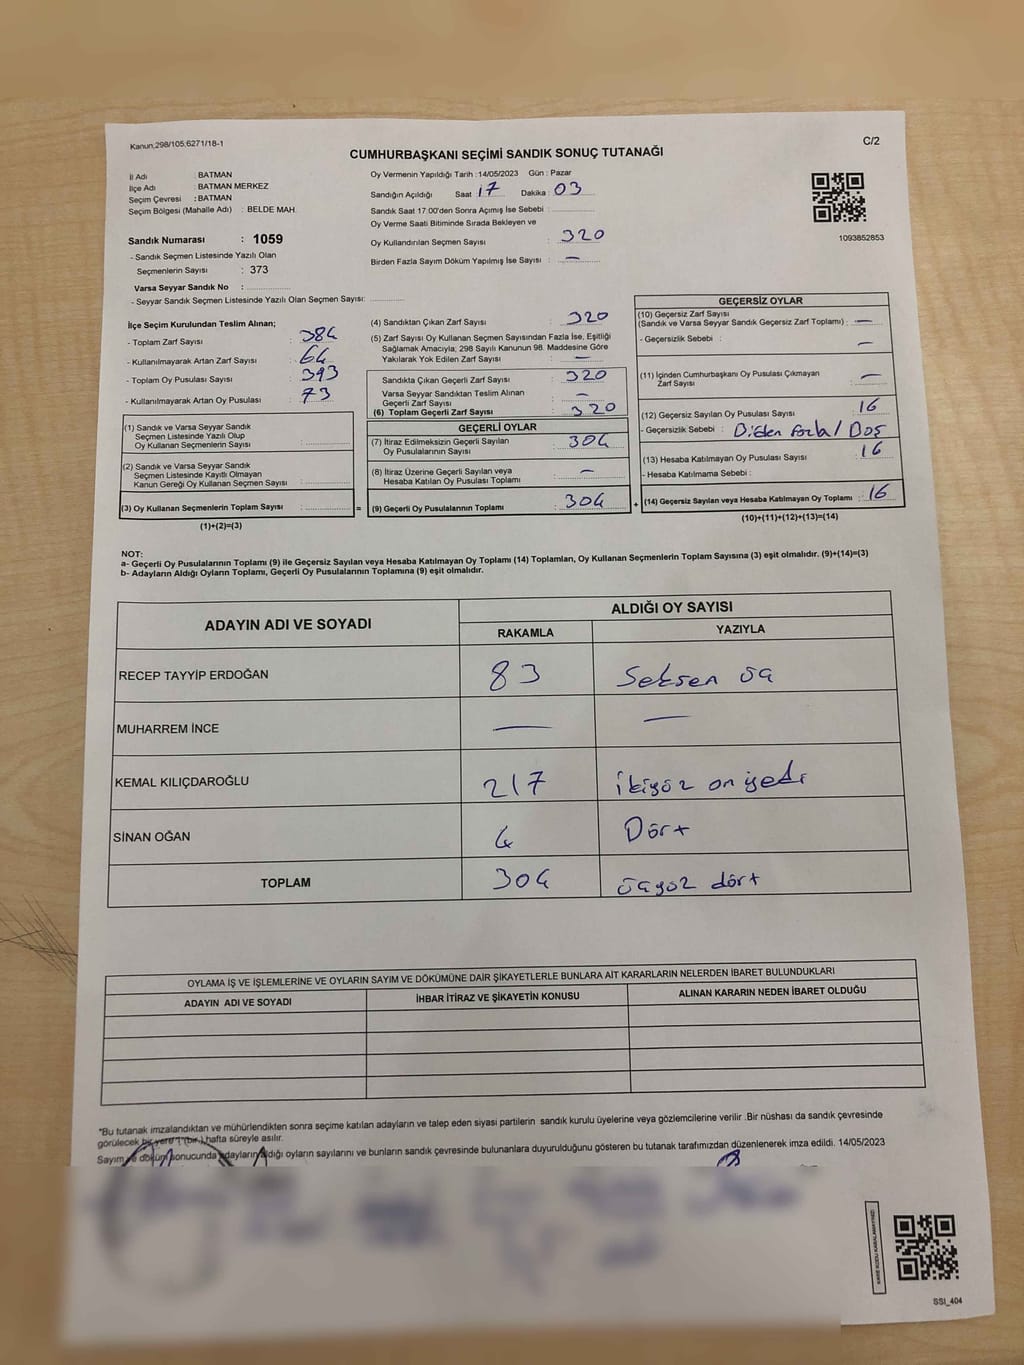 Kanun,298/105,6271/18-1
C/2
CUMHURBAŞKANI SEÇİMİ SANDIK SONUÇ TUTANAĞI
İl Adı : BATMAN
İlçe Adı : BATMAN MERKEZ
Seçim Çevresi : BATMAN
Seçim Bölgesi (Mahalle Adı) : BELDE MAH.
Sandık Numarası : 1059
- Sandık Seçmen Listesinde Yazılı Olan
Seçmenlerin Sayısı : 373
Varsa Seyyar Sandık No :
- Seyyar Sandık Seçmen Listesinde Yazılı Olan Seçmen Sayısı:
Oy Vermenin Yapıldığı Tarih :14/05/2023 Gün : Pazar
Sandığın Açıldığı Saat : 17 Dakika : 03
Sandık Saat 17:00'den Sonra Açımış İse Sebebi :
Oy Verme Saati Bitiminde Sırada Bekleyen ve
Oy Kullandırılan Seçmen Sayısı : 320
Birden Fazla Sayım Döküm Yapılmış İse Sayısı : —
1093852853
İlçe Seçim Kurulundan Teslim Alınan;
- Toplam Zarf Sayısı : 384
- Kullanılmayarak Artan Zarf Sayısı : 64
- Toplam Oy Pusulası Sayısı : 393
- Kullanılmayarak Artan Oy Pusulası : 73
(1) Sandık ve Varsa Seyyar Sandık
Seçmen Listesinde Yazılı Olup
Oy Kullanan Seçmenlerin Sayısı :
(2) Sandık ve Varsa Seyyar Sandık
Seçmen Listesinde Kayıtlı Olmayan
Kanun Gereği Oy Kullanan Seçmen Sayısı :
(3) Oy Kullanan Seçmenlerin Toplam Sayısı : =
(1)+(2)=(3)
(4) Sandıktan Çıkan Zarf Sayısı : 320
(5) Zarf Sayısı Oy Kullanan Seçmen Sayısından Fazla İse, Eşitliği
Sağlamak Amacıyla; 298 Sayılı Kanunun 98. Maddesine Göre
Yakılarak Yok Edilen Zarf Sayısı : —
Sandıkta Çıkan Geçerli Zarf Sayısı : 320
Varsa Seyyar Sandıktan Teslim Alınan
Geçerli Zarf Sayısı : —
(6) Toplam Geçerli Zarf Sayısı : 320
GEÇERLİ OYLAR
(7) İtiraz Edilmeksizin Geçerli Sayılan
Oy Pusulalarının Sayısı : 304
(8) İtiraz Üzerine Geçerli Sayılan veya
Hesaba Katılan Oy Pusulası Toplamı : —
(9) Geçerli Oy Pusulalarının Toplamı : 304 +
GEÇERSİZ OYLAR
(10) Geçersiz Zarf Sayısı
(Sandık ve Varsa Seyyar Sandık Geçersiz Zarf Toplamı) : —
- Geçersizlik Sebebi : —
(11) İçinden Cumhurbaşkanı Oy Pusulası Çıkmayan
Zarf Sayısı : —
(12) Geçersiz Sayılan Oy Pusulası Sayısı : 16
- Geçersizlik Sebebi : Birden fazla / Boş
(13) Hesaba Katılmayan Oy Pusulası Sayısı : 16
- Hesaba Katılmama Sebebi :
(14) Geçersiz Sayılan veya Hesaba Katılmayan Oy Toplamı : 16
(10)+(11)+(12)+(13)=(14)
NOT:
a- Geçerli Oy Pusulalarının Toplamı (9) ile Geçersiz Sayılan veya Hesaba Katılmayan Oy Toplamı (14) Toplamları, Oy Kullanan Seçmenlerin Toplam Sayısına (3) eşit olmalıdır. (9)+(14)=(3)
b- Adayların Aldığı Oyların Toplamı, Geçerli Oy Pusulalarının Toplamına (9) eşit olmalıdır.
ADAYIN ADI VE SOYADI
ALDIĞI OY SAYISI
RAKAMLA YAZIYLA
RECEP TAYYİP ERDOĞAN 83 Seksen üç
MUHARREM İNCE — —
KEMAL KILIÇDAROĞLU 217 ikiyüz on yedi
SİNAN OĞAN 4 Dört
TOPLAM 304 üçyüz dört
OYLAMA İŞ VE İŞLEMLERİNE VE OYLARIN SAYIM VE DÖKÜMÜNE DAİR ŞİKAYETLERLE BUNLARA AİT KARARLARIN NELERDEN İBARET BULUNDUKLARI
ADAYIN ADI VE SOYADI İHBAR İTİRAZ VE ŞİKAYETİN KONUSU ALINAN KARARIN NEDEN İBARET OLDUĞU
*Bu tutanak imzalandıktan ve mühürlendikten sonra seçime katılan adayların ve talep eden siyasi partilerin sandık kurulu üyelerine veya gözlemcilerine verilir .Bir nüshası da sandık çevresinde
görülecek bir yere 1 (bir) hafta süreyle asılır.
Sayım ve döküm sonucunda adayların aldığı oyların sayılarını ve bunların sandık çevresinde bulunanlara duyurulduğunu gösteren bu tutanak tarafımızdan düzenlenerek imza edildi. 14/05/2023
KARE KODU KARALAMAYINIZ!
SSI_404